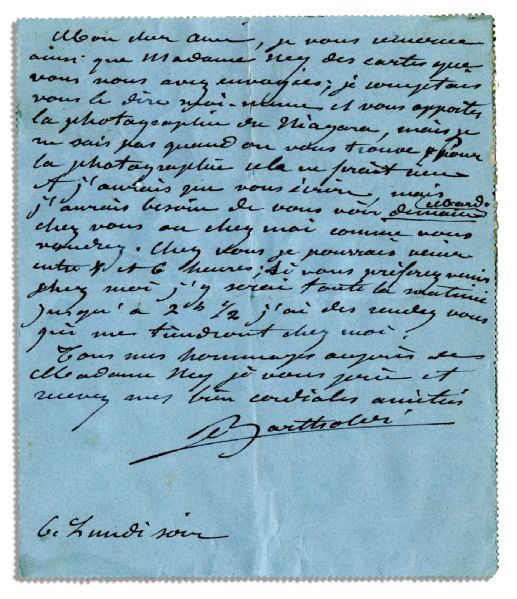 Mon cher ami, je vous remercie
ainsi que Madame Ney des cartes que
vous nous avez envoyées; je comptais
vous le dire moi-même et vous apporter
la photographie du Niagara, mais je
ne sais pas quand on vous trouve Pour
la photographie cela ne serait rien
j'aurais pu vous écrire mais
Mardi
j'aurais besoin de vous voir demain
chez vous ou chez moi comme vous
voudrez. Chez vous je pourrais venir
entre et 6 heures; si vous préférez venir
chez moi j'y serai toute la matinée
jusqu'à 2h 1/2 j'ai des rendez vous
qui me tiendront chez moi.
Tous mes hommages auprès de
Madame Ney je vous prie et
recevez mes bien cordiales amitiés
Bartholdi
Lundi soir